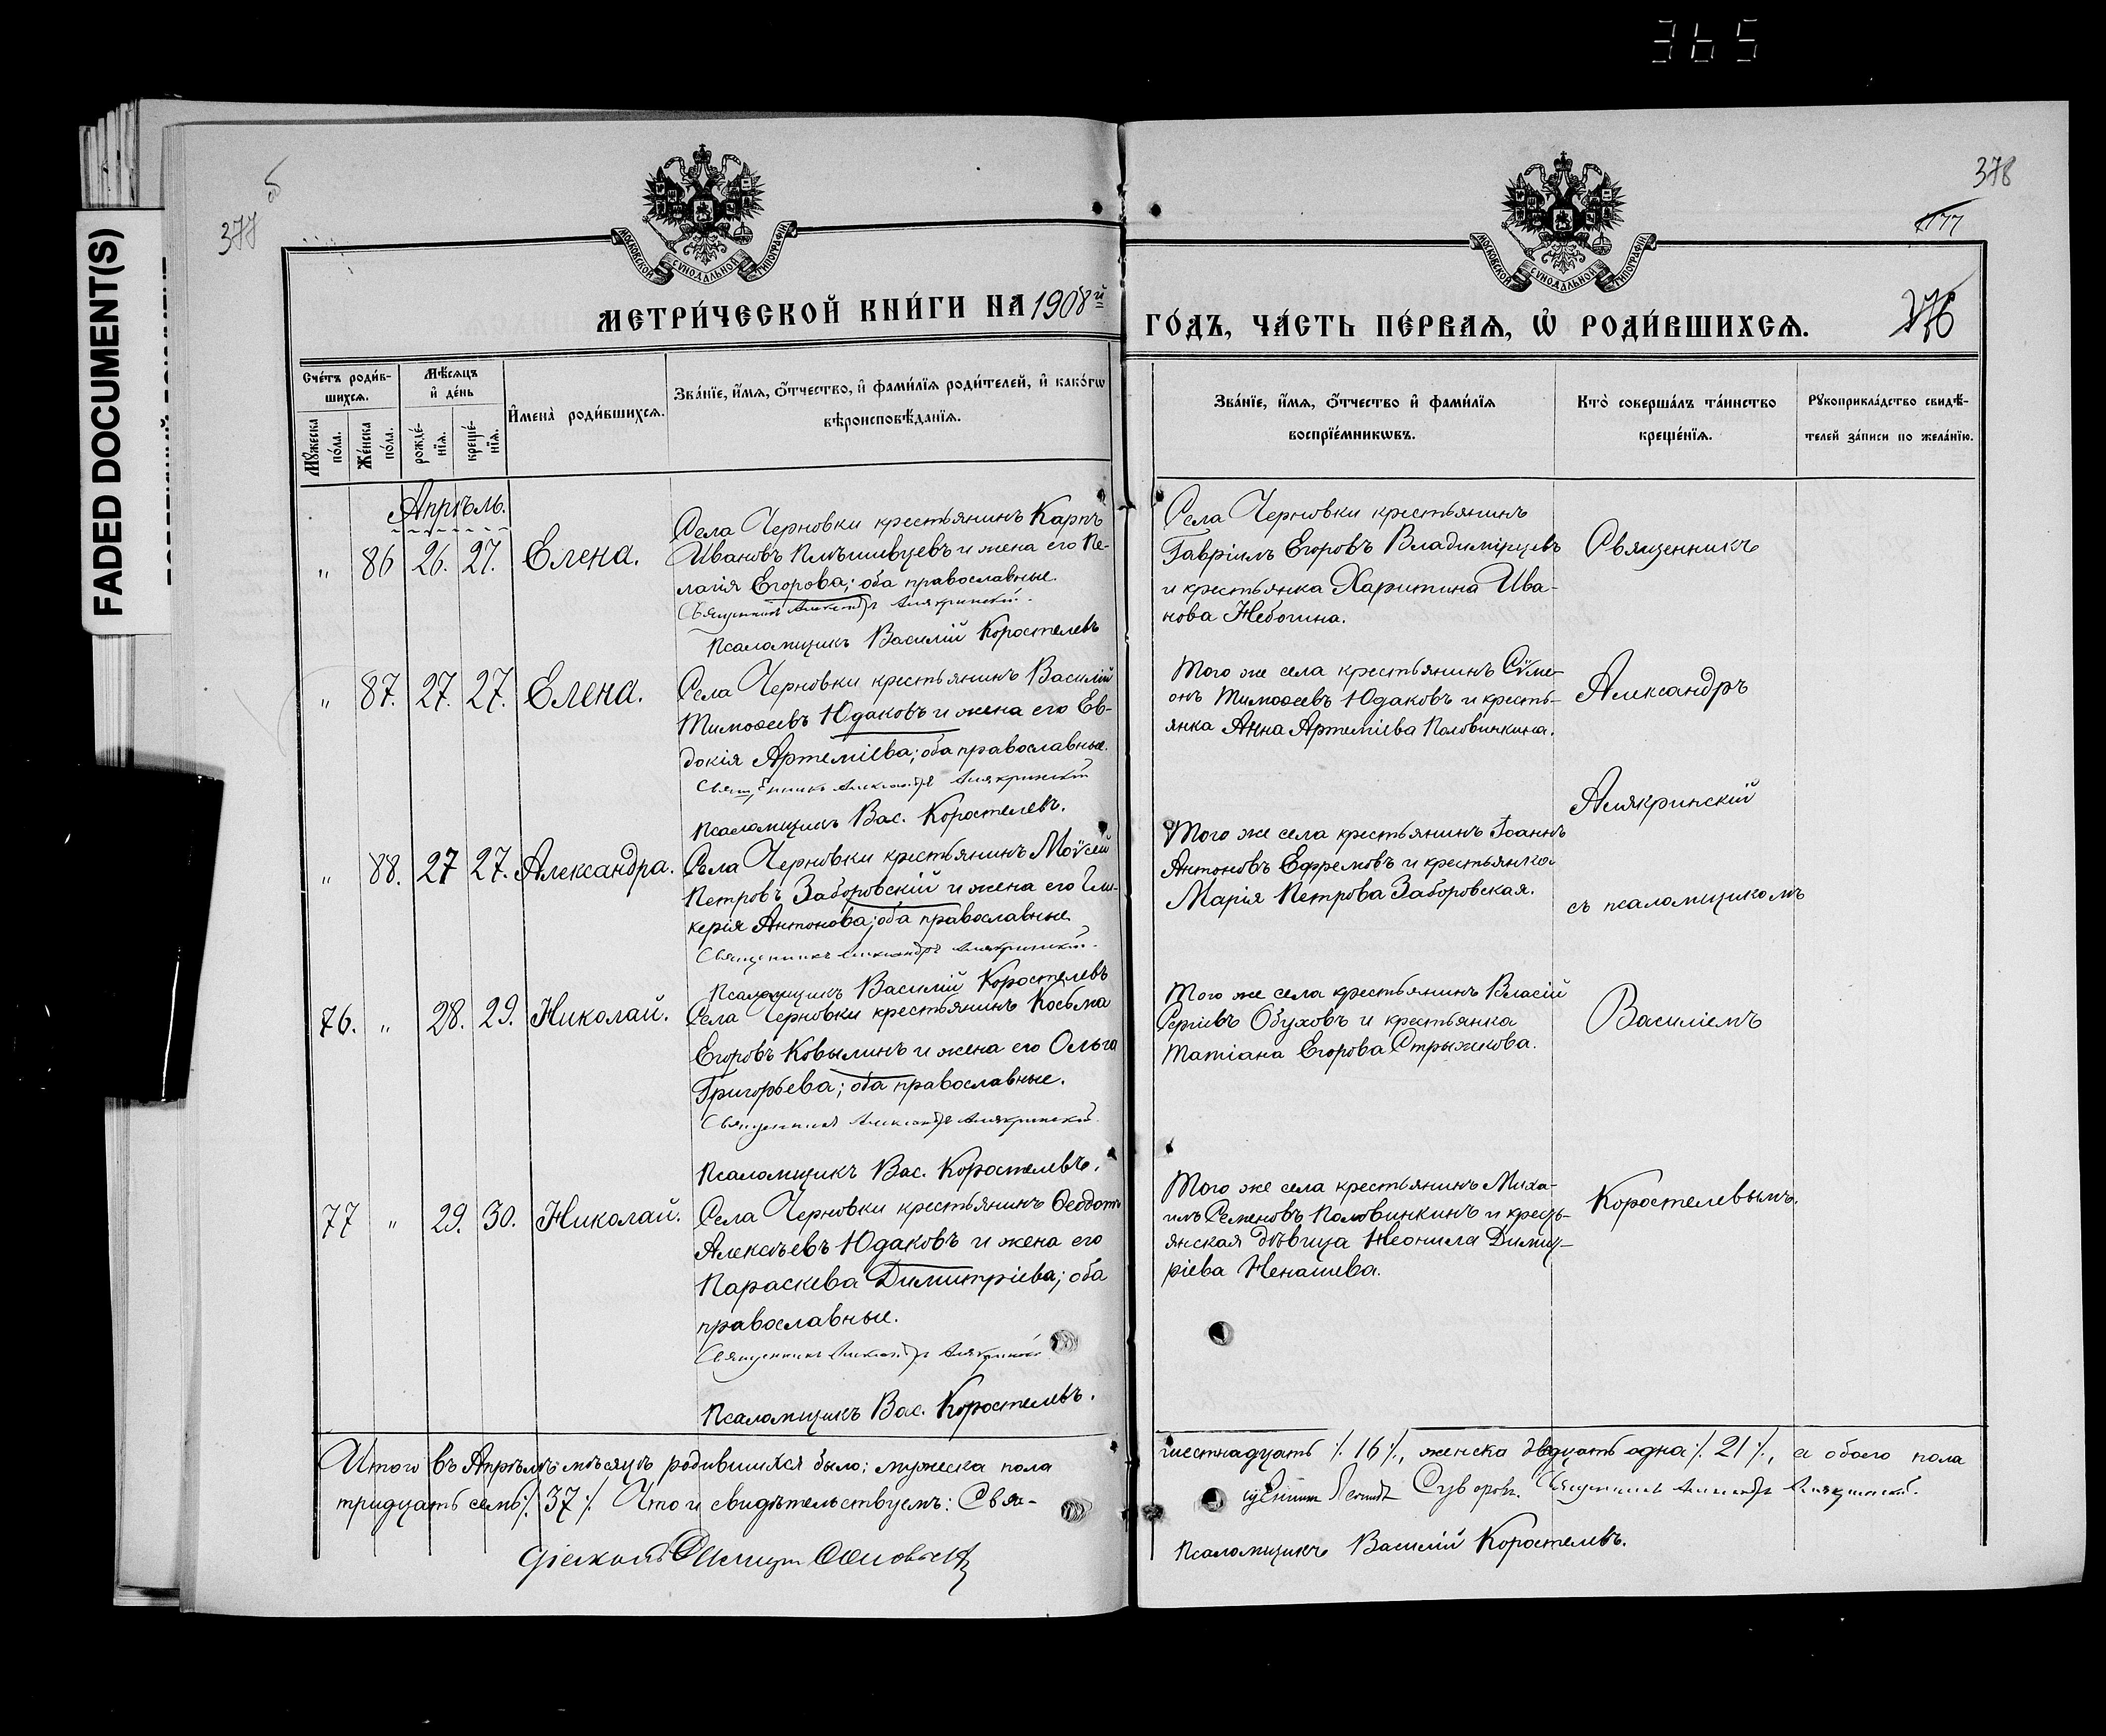 365
FADED DOCUMENT(S)
377 об
378
177
376
МОСКОВСКОЙ СѴНОДАЛЬНОЙ ТИПОГРАФІИ
МОСКОВСКОЙ СѴНОДАЛЬНОЙ ТИПОГРАФІИ
МЕТРИ́ЧЕСКОЙ КНИ́ГИ НА 1908й
ГО́ДЪ, ЧА́СТЬ ПЕ́РВАѦ, Ѡ҆ РОДИ́ВШИХСѦ.
Сче́тъ роди́в-
шихсѧ.
Мѣ́сѧцъ
и҆ де́нь
Мꙋ́жеска
по́ла.
Же́нска
по́ла.
рожде́-
нїѧ.
креще́-
нїѧ.
И҆мена̀ роди́вшихсѧ.
Зва́нїе, и҆́мѧ, ѻ҆́тчество, и҆ фами́лїѧ роди́телей, и҆ како́гѡ
вѣроисповѣ́данїѧ.
Зва́нїе, и҆́мѧ, ѻ҆́тчество и҆ фами́лїѧ
воспрїе́мникѡвъ.
Кто̀ соверша́лъ та́инство
креще́нїѧ.
Рꙋкоприкла́дство свидѣ́-
телей за́писи по жела́нїю.
Апрѣль.
„ 86 26. 27. Елена.
Села Черновки крестьянинъ Карпъ
Ивановъ Плѣшивцевъ и жена его Пе-
лагія Егорова; оба православные.
Священникъ Александръ Алякринскій.
Псаломщикъ Василій Коростелевъ
Села Черновки крестьянинъ
Гавріилъ Егоровъ Владимірцевъ
и крестьянка Харитина Ива-
нова Небогина.
Священникъ
„ 87. 27. 27. Елена.
Села Черновки крестьянинъ Василій
Тимоѳеевъ Юдаковъ и жена его Ев-
докія Артеміева; оба православные.
Священникъ Александръ Алякринскій
Псаломщикъ Вас. Коростелевъ.
Того же села крестьянинъ Сѵме-
онъ Тимоѳеевъ Юдаковъ и кресть-
янка Анна Артеміева Половинкина.
Александръ
Алякринскій
„ 88. 27 27. Александра.
Села Черновки крестьянинъ Моѵсей
Петровъ Заборовскій и жена его Гли-
керія Антонова; оба православные
Священникъ Александръ Алякринскій.
Псаломщикъ Василій Коростелевъ
Того же села крестьянинъ Іоаннъ
Антоновъ Ефремовъ и крестьянка
Марія Петрова Заборовская.
съ псаломщикомъ
76. „ 28. 29. Николай.
Села Черновки крестьянинъ Косьма
Егоровъ Ковылинъ и жена его Ольга
Григорьева; оба православные.
Священникъ Александръ Алякринскій.
Псаломщикъ Вас. Коростелевъ.
Того же села крестьянинъ Власій
Сергіевъ Обуховъ и крестьянка
Татіана Егорова Стрыжкова.
Василіемъ
77 „ 29. 30. Николай.
Села Черновки крестьянинъ Ѳеодотъ
Алексѣевъ Юдаковъ и жена его
Параскева Димитріева; оба
православные.
Священникъ Александръ Алякринскій
Псаломщикъ Вас. Коростелевъ.
Того же села крестьянинъ Миха-
илъ Семеновъ Половинкинъ и кресть-
янская дѣвица Неонила Димит-
ріева Ненашева.
Коростелевымъ.
Итого въ Апрѣлѣ мѣсяцѣ родившихся было: мужеска пола
шестнадцать ⁒ 16 ⁒, женска двадцать одна ⁒ 21 ⁒, а обоего пола
тридцать семь ⁒ 37 ⁒ Что и свидѣтельствуемъ: Свя-
щенникъ Суворовъ. Священникъ Александръ Алякринскій.
Діаконъ
Псаломщикъ Василій Коростелевъ.